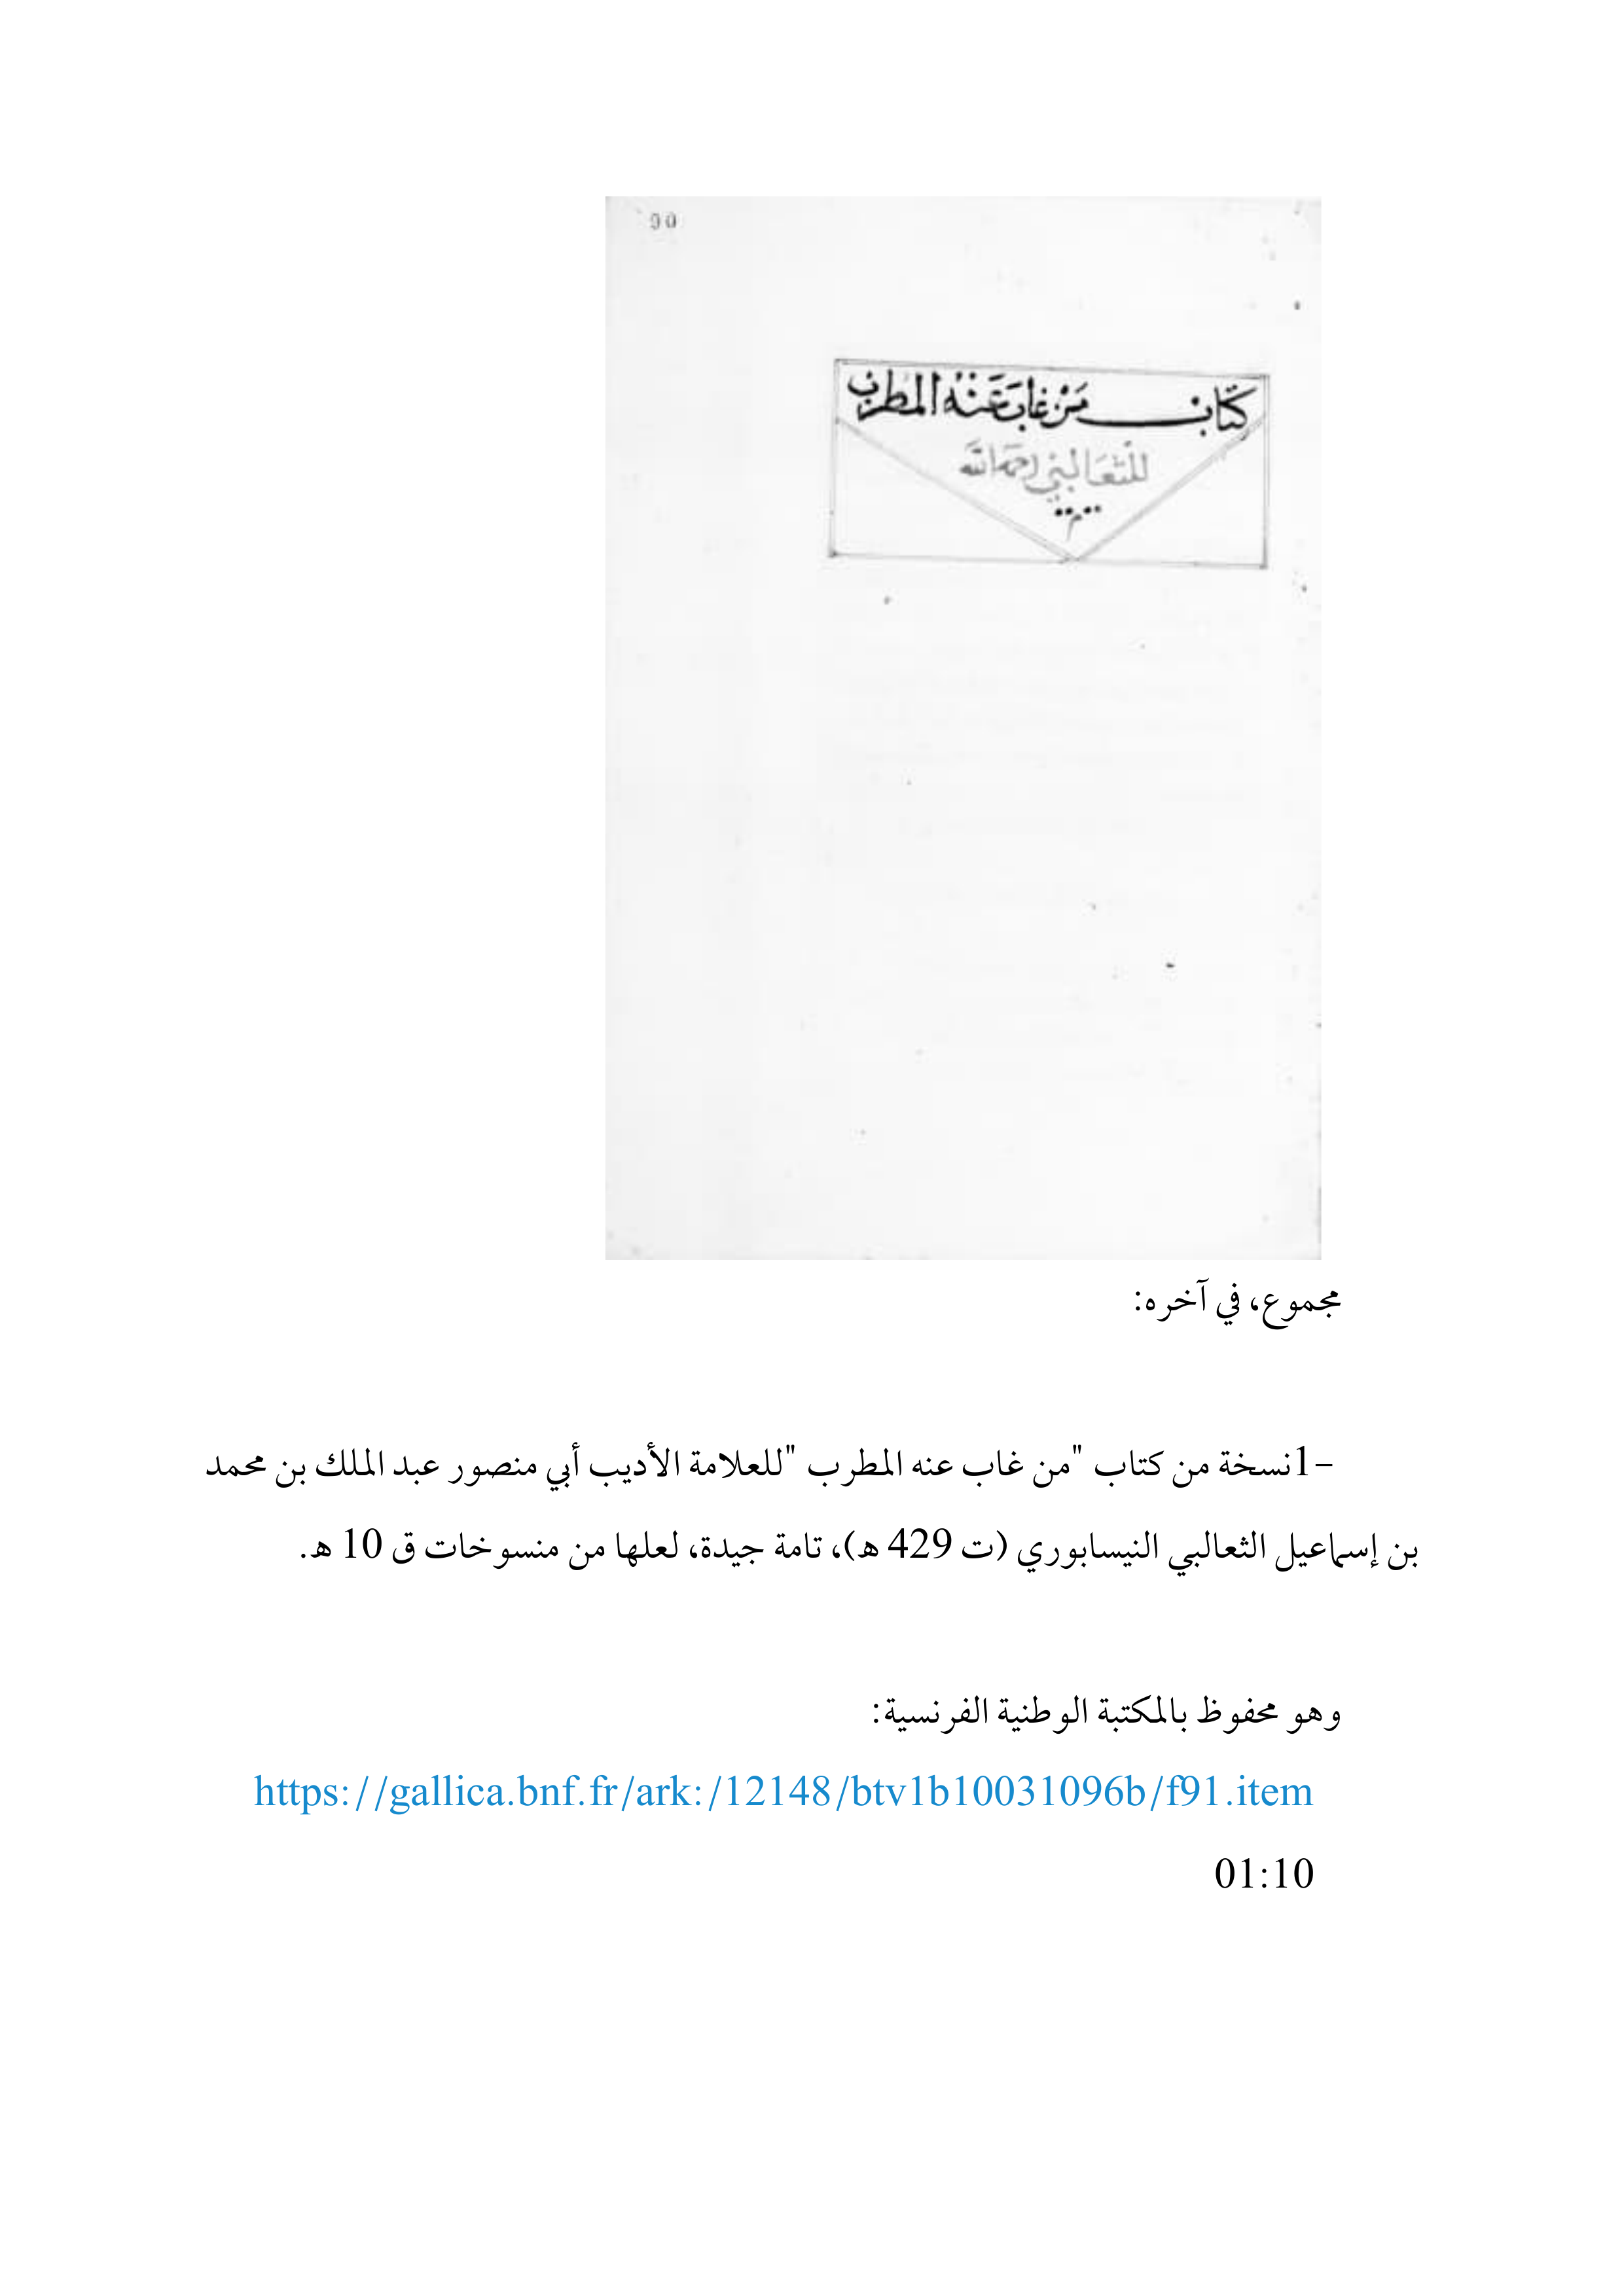 90
كتاب من غاب عنه المطرب
للثعالبي رحمه الله
مجموع، في آخره:
-1نسخة من كتاب "من غاب عنه المطرب "للعلامة الأديب أبي منصور عبد الملك بن محمد
بن إسماعيل الثعالبي النيسابوري (ت 429 هـ)، تامة جيدة، لعلها من منسوخات ق 10 هـ.
وهو محفوظ بالمكتبة الوطنية الفرنسية:
https://gallica.bnf.fr/ark:/12148/btv1b10031096b/f91.item
01:10